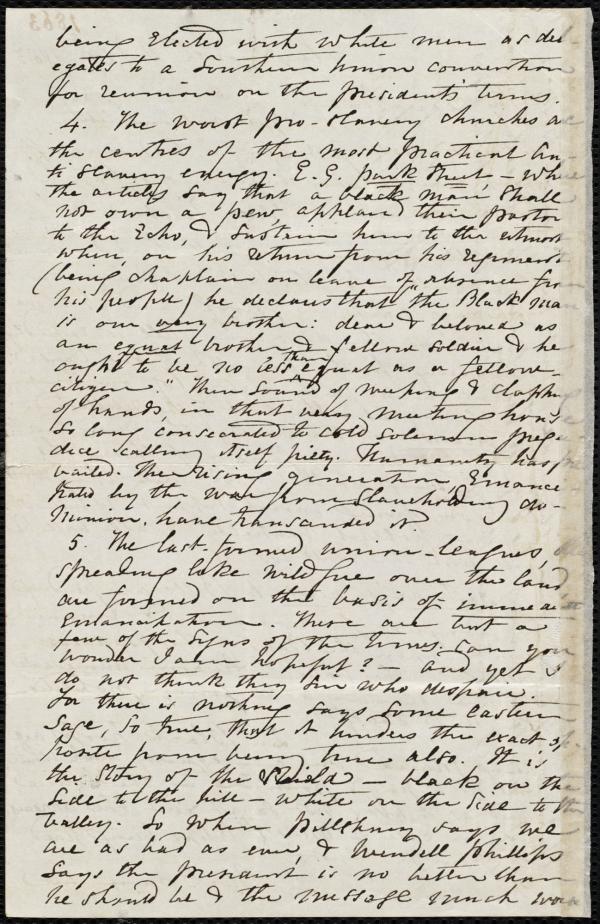 being elected with white men as del-
egates to a Southern Union convention
for reunion on the President's terms.
4. The worst pro-slavery churches are
the centres of the most practical An-
ti slavery energy. E.G. Park Street - where
the articles say that a black man shall
not own a pew, applaud their pastor
to the Echo, & sustain him to the utmost
when, on his return from his regiment
(being chaplain on leave of absence from
his people) he declares that "the Black man
is our very brother: dear & beloved as
an equal brother & fellow soldier & he
ought to be no less than equal as a fellow-
citizen." Then sound of weeping & clapping
of hands, in that very meeting house
so long consecrated to cold solemn preju-
dice calling itself piety. Humanity has pre-
vailed. The rising generation, Emanci-
pated by the war from slaveholding do-
minion, have transcended it.
5. The last-formed union-leagues,
spreading like wild fire over the land
are formed on the basis of immediate
Emancipation. These are but a
few of the signs of the times. Can you
wonder I am hopeful? - and yet I
do not think they sin who despair.
For there is nothing says some eastern
Sage, so true, that it hinders the exact op-
posite from being true also. It is
the story of the shield - black on the
side to the hill - white on the side to the
valley. So when Pillsbury says we
are as bad as ever, & Wendell Phillips
says the president is no better than
he should be & the message much worse